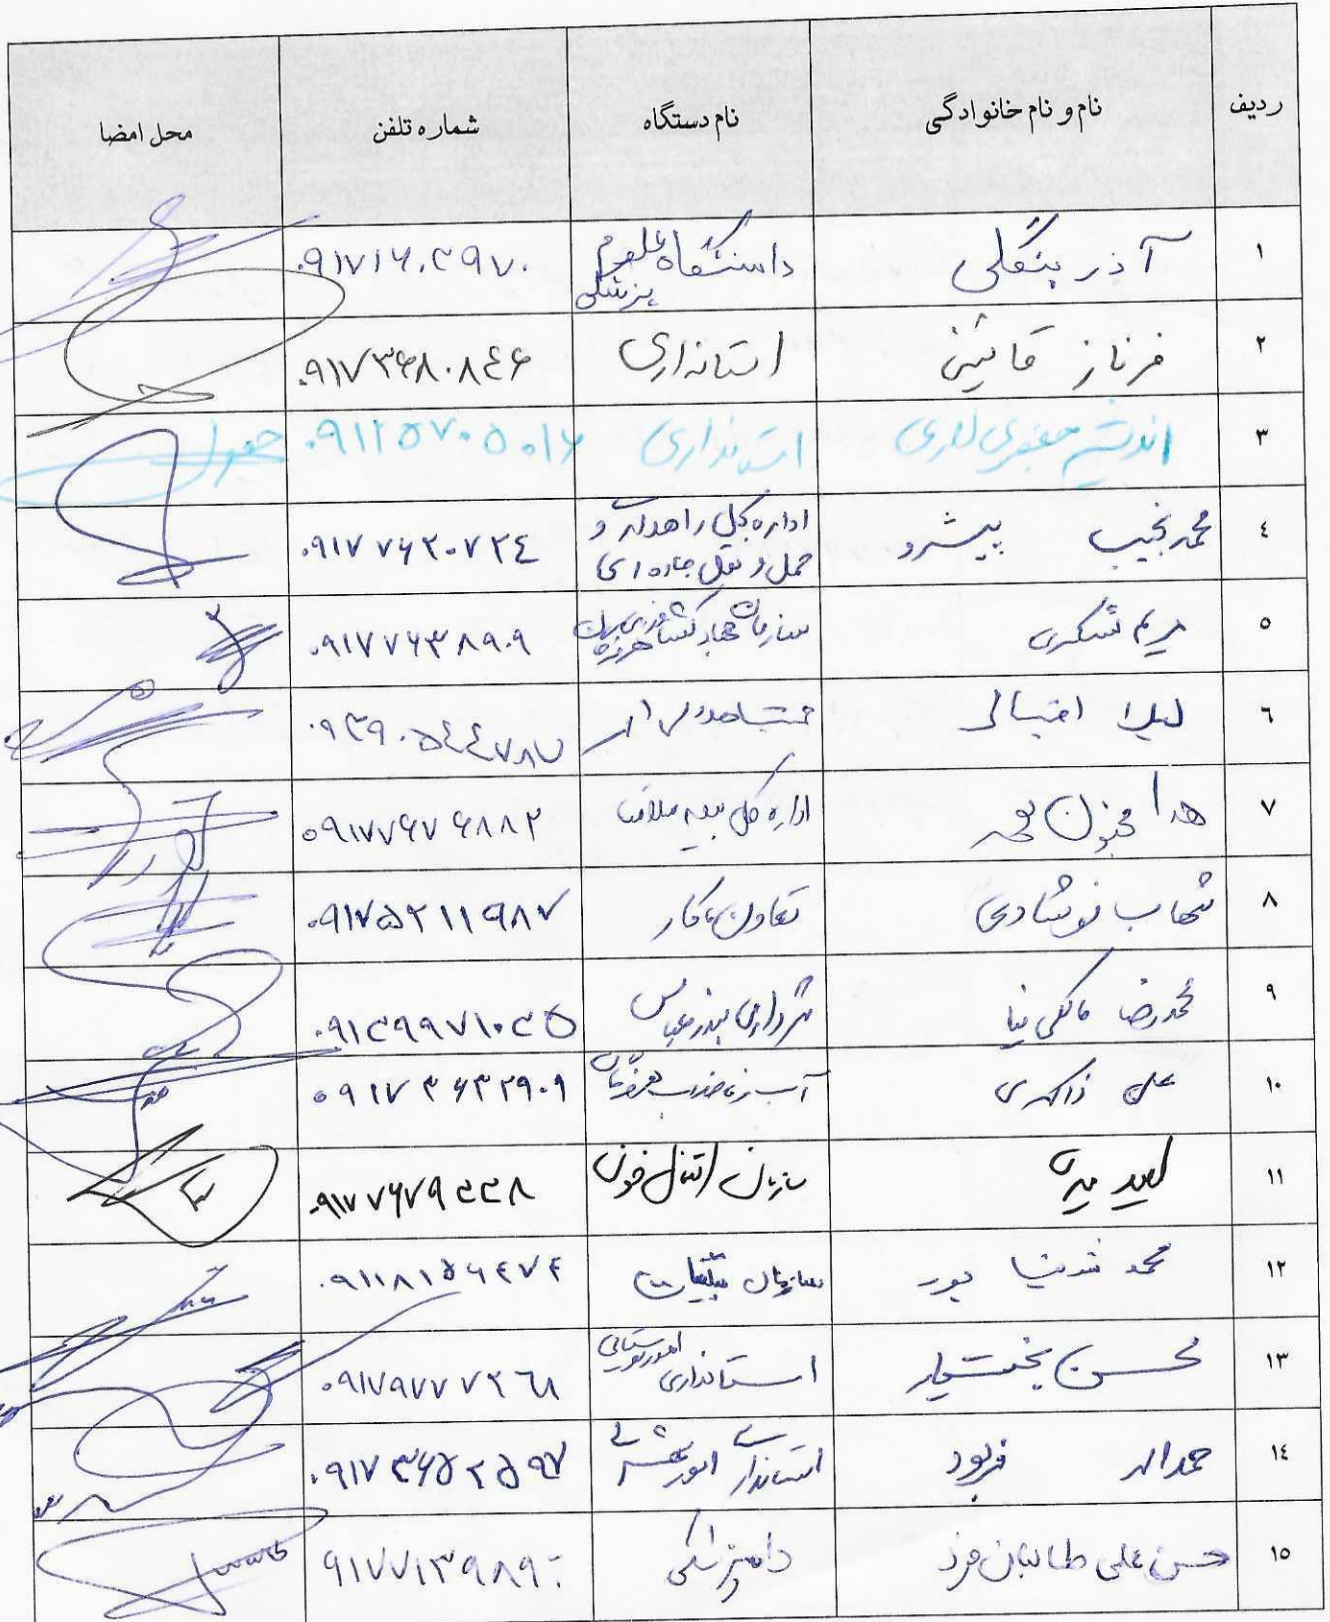 ردیف نام و نام خانوادگی نام دستگاه شماره تلفن محل امضا
۱ آذر بنگلی دانشگاه علوم پزشکی ۰۹۱۷۱۶۰۳۹۷۰
۲ فرناز قائینی استانداری ۰۹۱۷۳۶۸۰۸٤۶
۳ اندیشه جعفری لاری استانداری ۰۹۱۲۵۷۰۵۰۱۶
٤ محمد نجیب پیشرو اداره کل راهداری و
حمل و نقل جاده ای ۰۹۱۷۷۶۲۰۷۲٤
۵ مریم شکری سازمان جهاد کشاورزی هرمزگان ۰۹۱۷۷۶۳۸۹۰۹
٦ لیلا ۰۹۳۹۰۵٤٤۷۸۷
۷ هدا اداره کل بیمه سلامت ۰۹۱۷۷۶۷۶۸۸۲
۸ شهاب نوشادی تعاون، کار ۰۹۱۷۵۲۱۱۹۸۷
۹ محمدرضا مالکی نیا شهرداری بندرعباس ۰۹۱۳۹۹۷۱۰۳۵
۱۰ علی ذاکری آب و فاضلاب هرمزگان ۰۹۱۷۳۶۳۲۹۰۹
۱۱ سازمان انتقال خون ۰۹۱۷۷۶۷۹۳۳۸
۱۲ محمد پور سازمان تبلیغات ۰۹۱۱۸۱۵۶۴۷۴
۱۳ محسن بختیار استانداری امور روستایی ۰۹۱۷۹۷۷۷۲٦۸
۱٤ حمداله فربود استانداری امور عشایر ۰۹۱۷۳۶۵۲۵۹۷
۱۵ حسن علی طالبان فرد دامپزشکی ۰۹۱۷۷۱۳۹۸۹۰